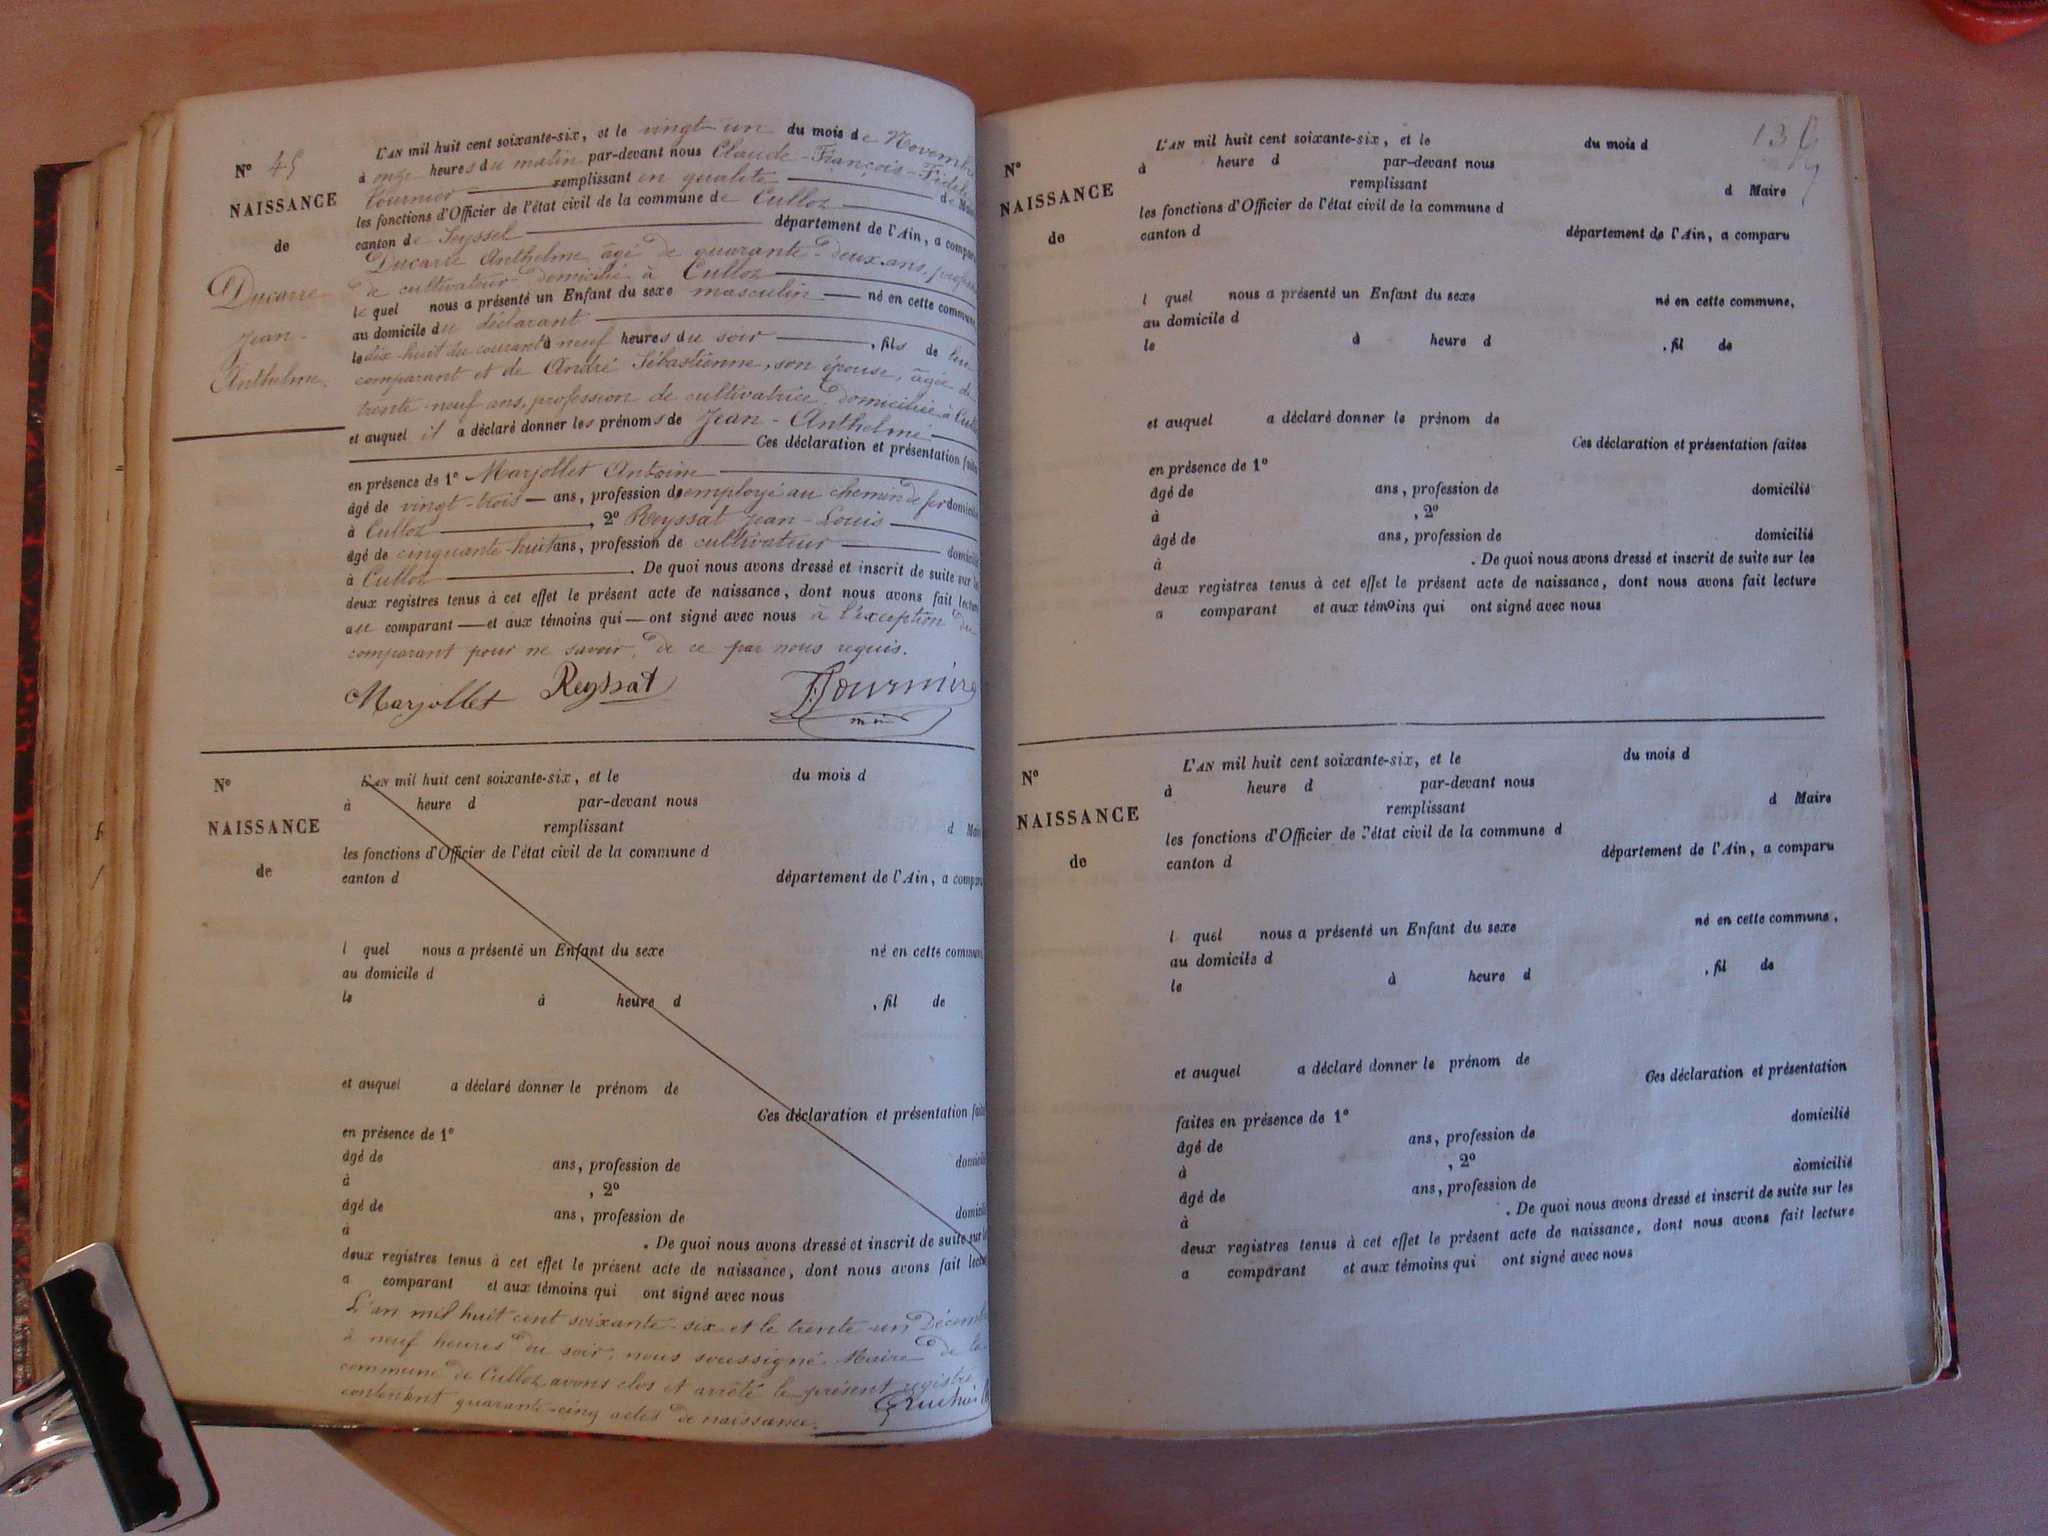 N° 45
NAISSANCE
de
Ducarre
Jean-
Anthelme.
L'AN mil huit cent soixante-six, et le vingt-un du mois de Novembre
à onze heures du matin par-devant nous Claude-François-Fidèle
Fournier remplissant en qualité de Maire
les fonctions d'Officier de l'état civil de la commune de Culloz
canton de Seyssel département de l'Ain, a comparu
Ducarre Anthelme âgé de quarante-deux ans, profession
de cultivateur domicilié à Culloz
lequel nous a présenté un Enfant du sexe masculin né en cette commune,
au domicile du déclarant
le dix-huit du courant à neuf heures du soir , fils de
comparant et de André Sébastienne, son épouse, âgée de
trente-neuf ans, profession de cultivatrice domiciliée à Culloz
et auquel il a déclaré donner les prénoms de Jean-Anthelme
Ces déclaration et présentation faites
en présence de 1° Marjollet Antoine
âgé de vingt-trois ans, profession de employé au chemin de fer domicilié
à Culloz , 2° Reyssat Jean-Louis
âgé de cinquante-huit ans, profession de cultivateur domicilié
à Culloz . De quoi nous avons dressé et inscrit de suite sur les
deux registres tenus à cet effet le présent acte de naissance, dont nous avons fait lecture
au comparant et aux témoins qui ont signé avec nous à l'exception du
comparant pour ne savoir, de ce par nous requis.
Marjollet Reyssat Fournier
maire
N°
NAISSANCE
de
L'AN mil huit cent soixante-six, et le du mois d
à heure d par-devant nous
remplissant d Maire
les fonctions d'Officier de l'état civil de la commune d
canton d département de l'Ain, a comparu
l quel nous a présenté un Enfant du sexe né en cette commune,
au domicile d
le à heure d , fil de
et auquel a déclaré donner le prénom de
Ces déclaration et présentation faites
en présence de 1°
âgé de ans, profession de domicilié
à , 2°
âgé de ans, profession de domicilié
à . De quoi nous avons dressé et inscrit de suite sur les
deux registres tenus à cet effet le présent acte de naissance, dont nous avons fait lecture
a comparant et aux témoins qui ont signé avec nous
L'an mil huit cent soixante-six et le trente-un Décembre
à neuf heures du soir, nous soussigné Maire de la
commune de Culloz avons clos et arrêté le présent registre
contenant quarante-cinq actes de naissance.
13
N°
NAISSANCE
de
L'AN mil huit cent soixante-six, et le du mois d
à heure d par-devant nous
remplissant d Maire
les fonctions d'Officier de l'état civil de la commune d
canton d département de l'Ain, a comparu
l quel nous a présenté un Enfant du sexe né en cette commune,
au domicile d
le à heure d , fil de
et auquel a déclaré donner le prénom de
Ces déclaration et présentation faites
en présence de 1°
âgé de ans, profession de domicilié
à , 2°
âgé de ans, profession de domicilié
à . De quoi nous avons dressé et inscrit de suite sur les
deux registres tenus à cet effet le présent acte de naissance, dont nous avons fait lecture
a comparant et aux témoins qui ont signé avec nous
N°
NAISSANCE
de
L'AN mil huit cent soixante-six, et le du mois d
à heure d par-devant nous
remplissant d Maire
les fonctions d'Officier de l'état civil de la commune d
canton d département de l'Ain, a comparu
l quel nous a présenté un Enfant du sexe né en cette commune,
au domicile d
le à heure d , fil de
et auquel a déclaré donner le prénom de
Ces déclaration et présentation
faites en présence de 1° domicilié
âgé de ans, profession de
à , 2°
âgé de ans, profession de domicilié
à . De quoi nous avons dressé et inscrit de suite sur les
deux registres tenus à cet effet le présent acte de naissance, dont nous avons fait lecture
a comparant et aux témoins qui ont signé avec nous